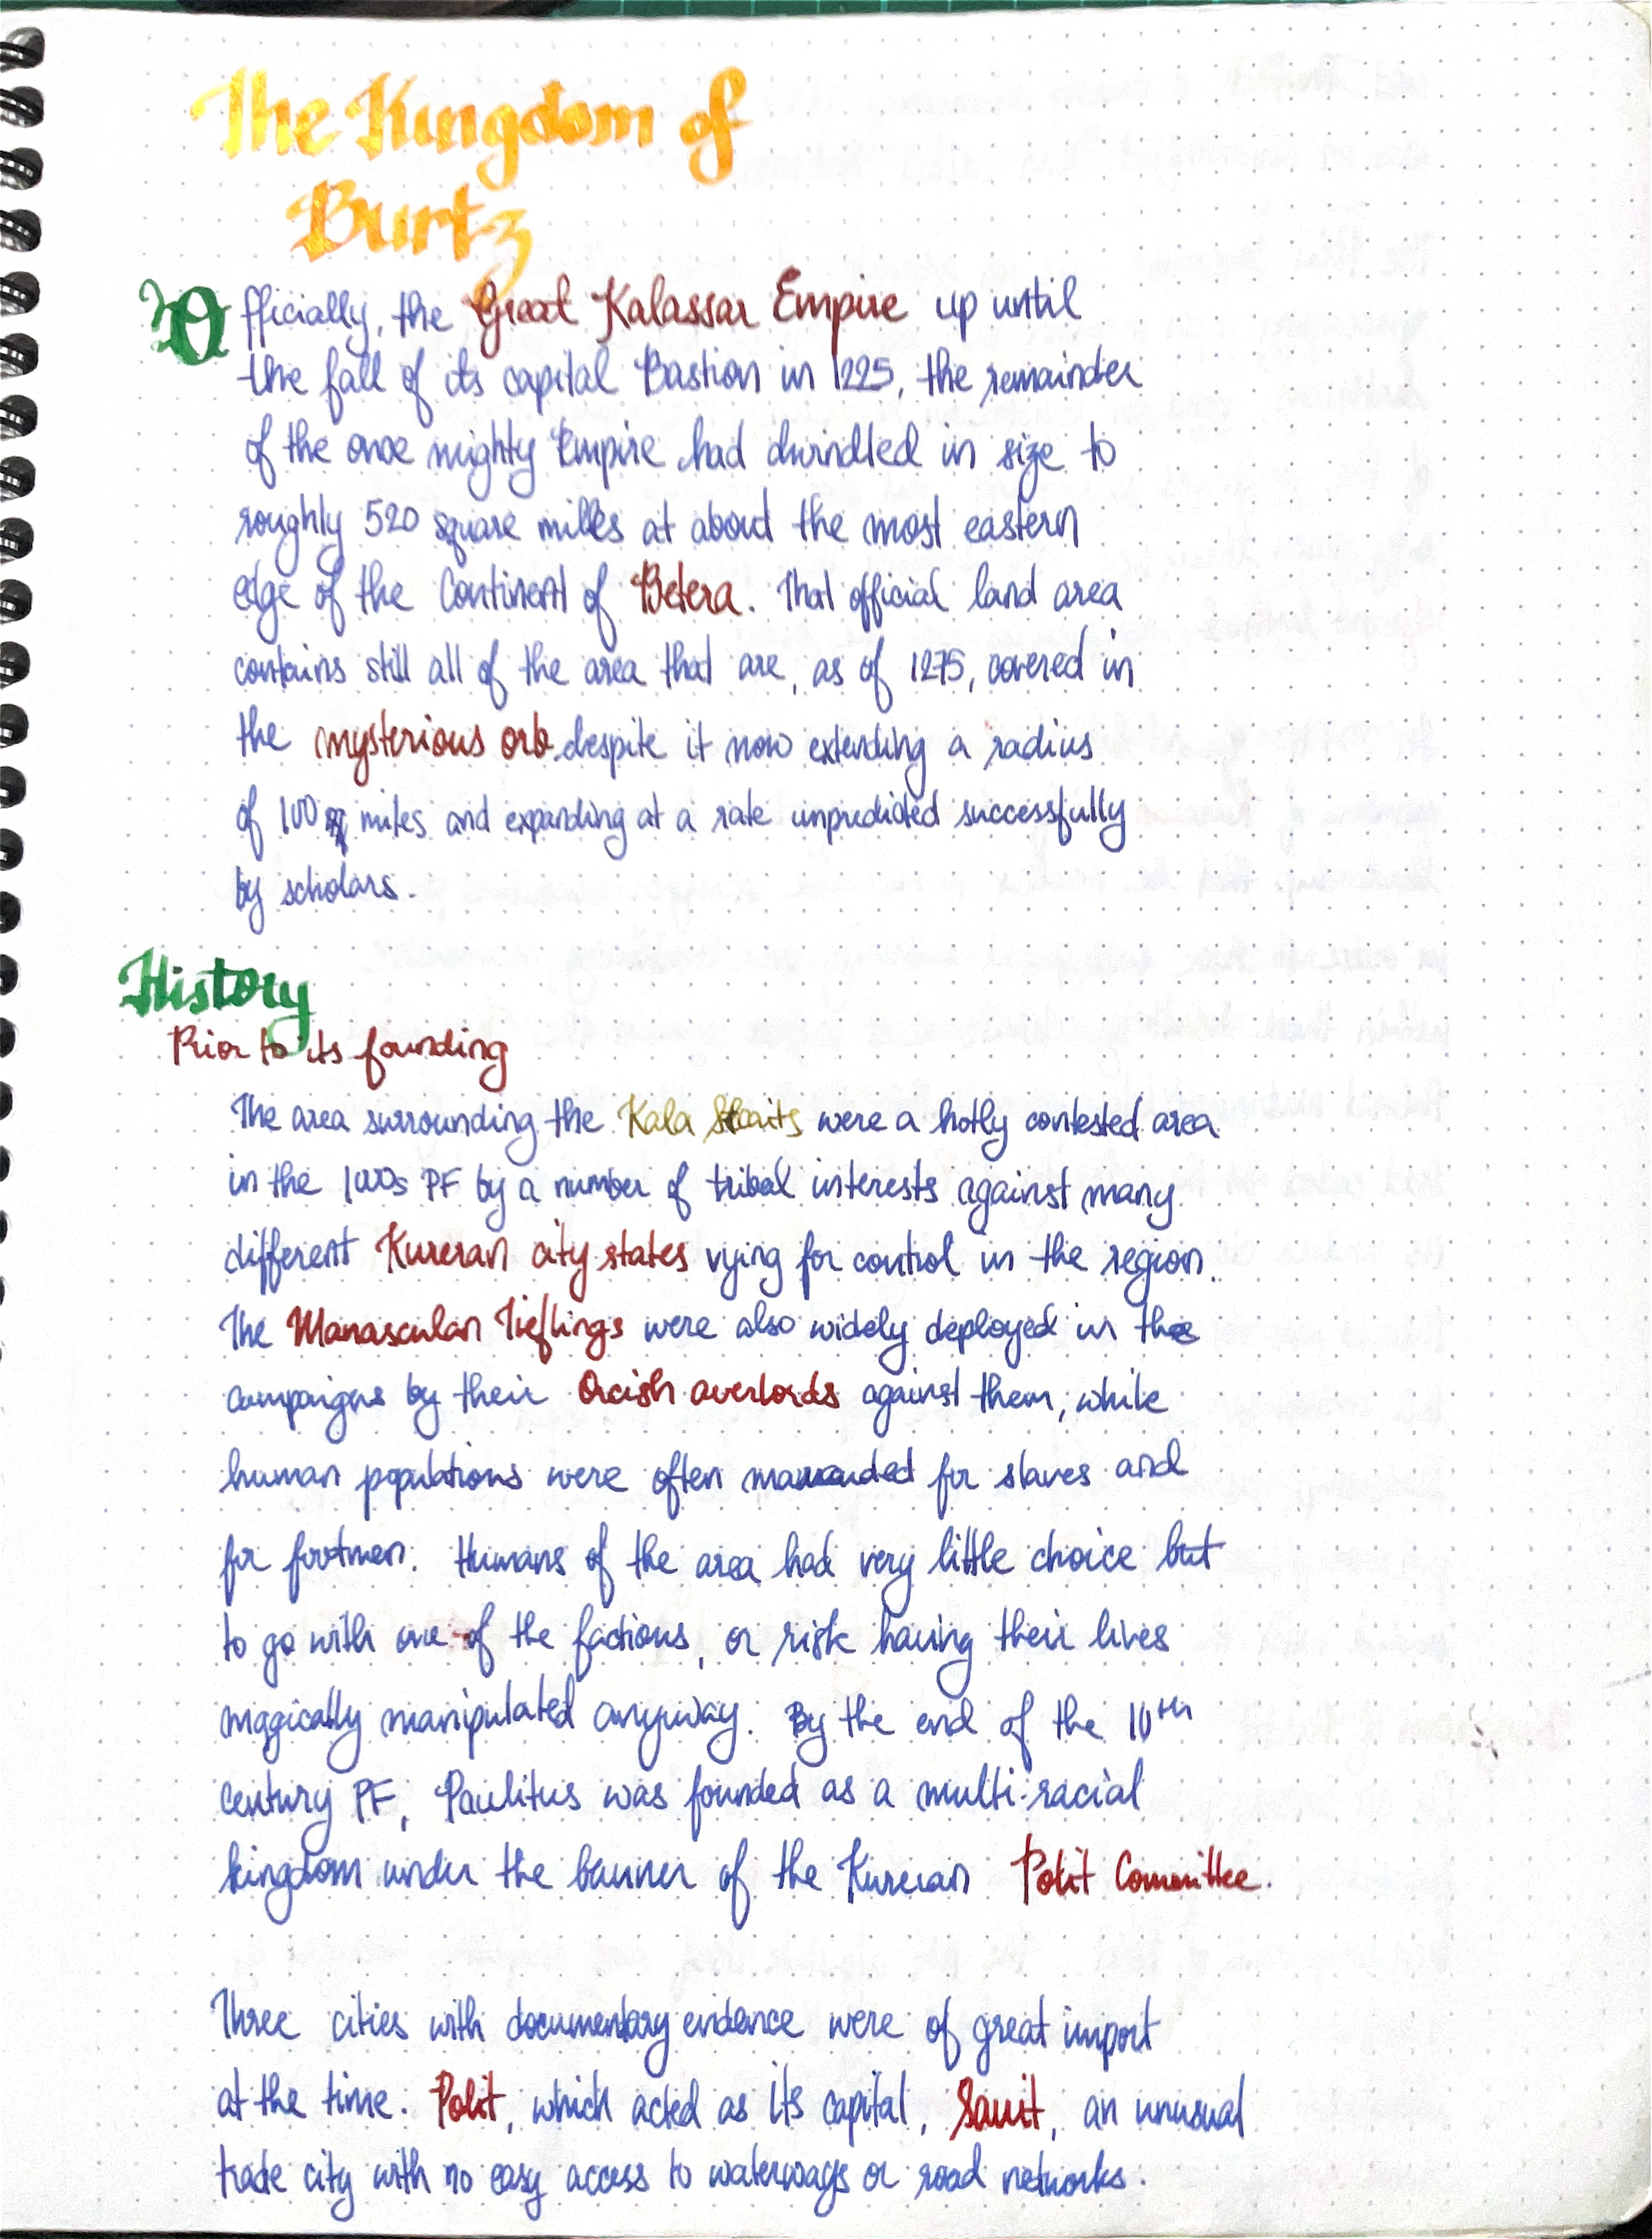 The Kingdom of
Burtz
Officially, the Great Kalassar Empire up until
the fall of its capital Bastion in 1225, the remainder
of the once mighty Empire had dwindled in size to
roughly 520 square miles at about the most eastern
edge of the Continent of Betera. That official land area
contains still all of the area that are, as of 1275, covered in
the mysterious orb despite it now extending a radius
of 100 miles and expanding at a rate unpredicted successfully
by scholars.
History
Prior to its founding
The area surrounding the Kala Straits were a hotly contested area
in the 1000s PF by a number of tribal interests against many
different Kureran city states vying for control in the region.
The Manascular Tieflings were also widely deployed in the
campaigns by their Orcish overlords against them, while
human populations were often marauded for slaves and
for footmen. Humans of the area had very little choice but
to go with one of the factions, or risk having their lives
magically manipulated anyway. By the end of the 10th
century PF, Paulitus was founded as a multi-racial
kingdom under the banner of the Kureran Polit Committee.
Three cities with documentary evidence were of great import
at the time. Polit, which acted as its capital, Sauit, an unusual
trade city with no easy access to waterways or road networks.